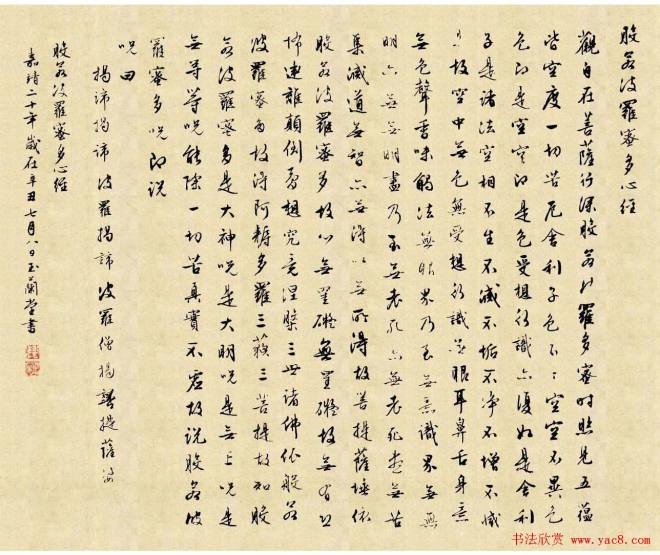 般若波羅蜜多心經
觀自在菩薩行深般若波羅多蜜時照見五蘊
皆空度一切苦厄舍利子色不異空空不異色
色即是空空即是色受想行識亦復如是舍利
子是諸法空相不生不滅不垢不净不增不減
是故空中無色無受想行識無眼耳鼻舌身意
無色聲香味觸法無眼界乃至無意識界無無
明亦無無明盡乃至無老死亦無老死盡無苦
集滅道無智亦無得以無所得故菩提薩埵依
般若波羅蜜多故心無罣礙無罣礙故無有恐
怖遠離顛倒夢想究竟涅槃三世諸佛依般若
波羅蜜多故得阿耨多羅三藐三菩提故知般
若波羅蜜多是大神呪是大明呪是無上呪是
無等等呪能除一切苦真實不虛故說般若波
羅蜜多呪即說
呪曰
揭諦揭諦 波羅揭諦 波羅僧揭諦 菩提薩婆
般若波羅蜜多心經
嘉靖二十年歲在辛丑七月八日玉蘭堂書
书法欣赏 www.yac8.com